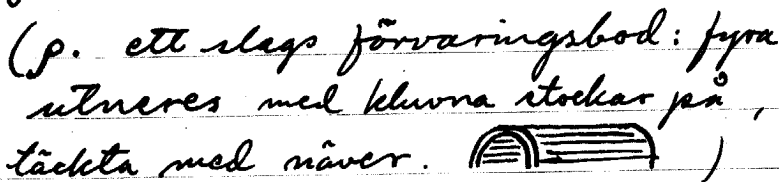 (p. ett slags förvaringsbod: fyra
utneres med kluvna stockar på,
täckta med näver. )